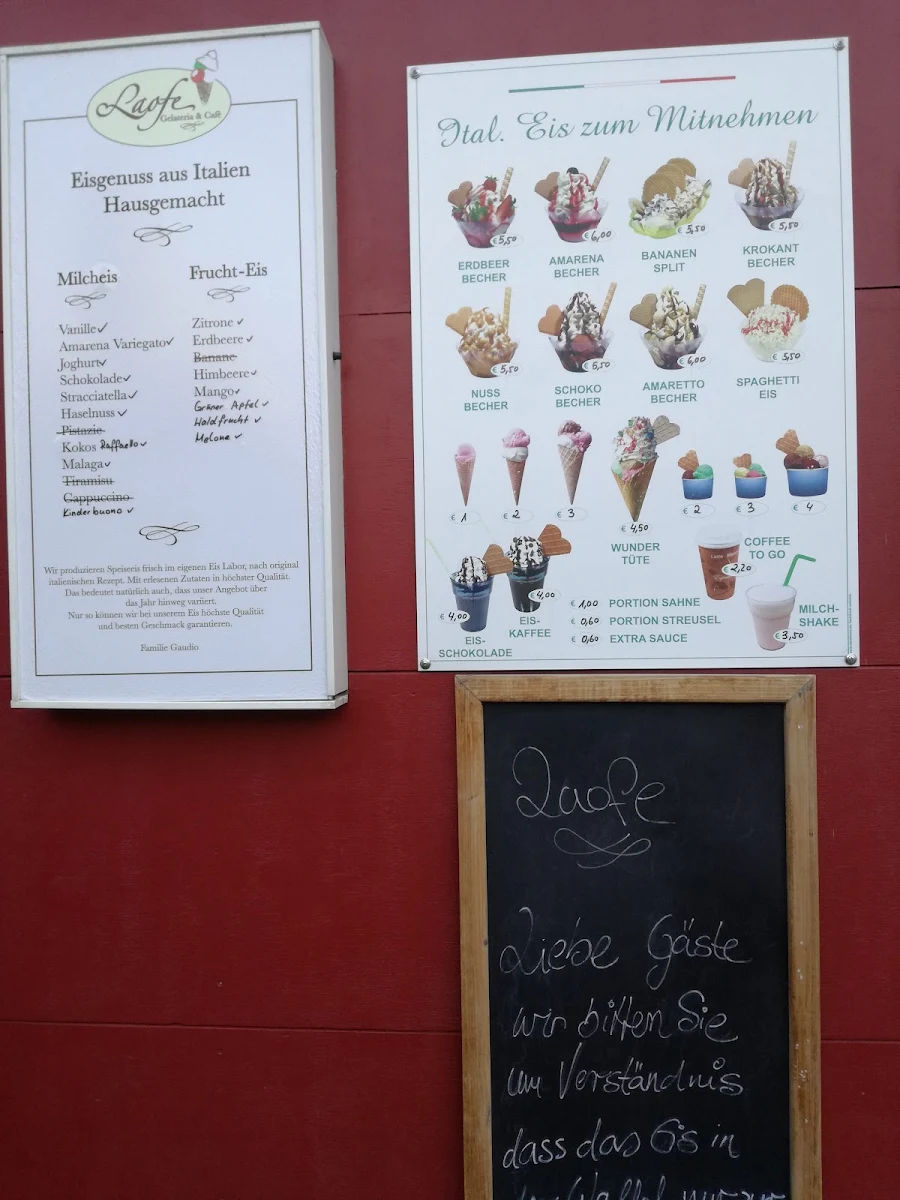 Laofe
Gelateria & Café
Eisgenuss aus Italien
Hausgemacht
Milcheis
Vanille ✓
Amarena Variegato ✓
Joghurt ✓
Schokolade ✓
Stracciatella ✓
Haselnuss ✓
Pistazie
Kokos Raffaello ✓
Malaga ✓
Tiramisu
Cappuccino
Kinderbuono ✓
Frucht-Eis
Zitrone ✓
Erdbeere ✓
Banane
Himbeere ✓
Mango ✓
Grüner Apfel ✓
Waldfrucht ✓
Melone ✓
Wir produzieren Speiseeis frisch im eigenen Eis Labor, nach original
italienischen Rezept. Mit erlesenen Zutaten in höchster Qualität.
Das bedeutet natürlich auch, dass unser Angebot über
das Jahr hinweg variiert.
Nur so können wir bei unserem Eis höchste Qualität
und besten Geschmack garantieren.
Familie Gaudio
Ital. Eis zum Mitnehmen
€ 5,50
ERDBEER
BECHER
€ 6,00
AMARENA
BECHER
€ 5,50
BANANEN
SPLIT
€ 5,50
KROKANT
BECHER
€ 5,50
NUSS
BECHER
€ 5,50
SCHOKO
BECHER
€ 6,00
AMARETTO
BECHER
€ 5,50
SPAGHETTI
EIS
€ 1
€ 2
€ 3
€ 4,50
WUNDER
TÜTE
€ 2
€ 3
€ 4
€ 4,00
EIS-
SCHOKOLADE
€ 4,00
EIS-
KAFFEE
COFFEE
TO GO
€ 2,20
€ 1,00 PORTION SAHNE
€ 0,60 PORTION STREUSEL
€ 0,60 EXTRA SAUCE
MILCH-
SHAKE
€ 3,50
Laofe
Liebe Gäste
wir bitten Sie
um Verständnis
dass das Eis in